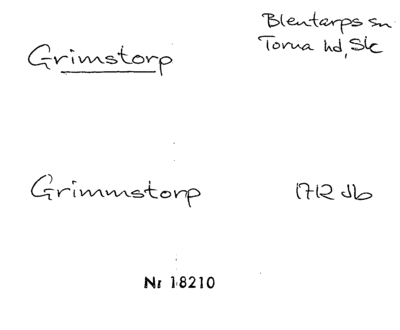 Grimstorp
Blentarps sn
Torna hd, Sk
Grimmstorp 1712 Jb
Nr 18210